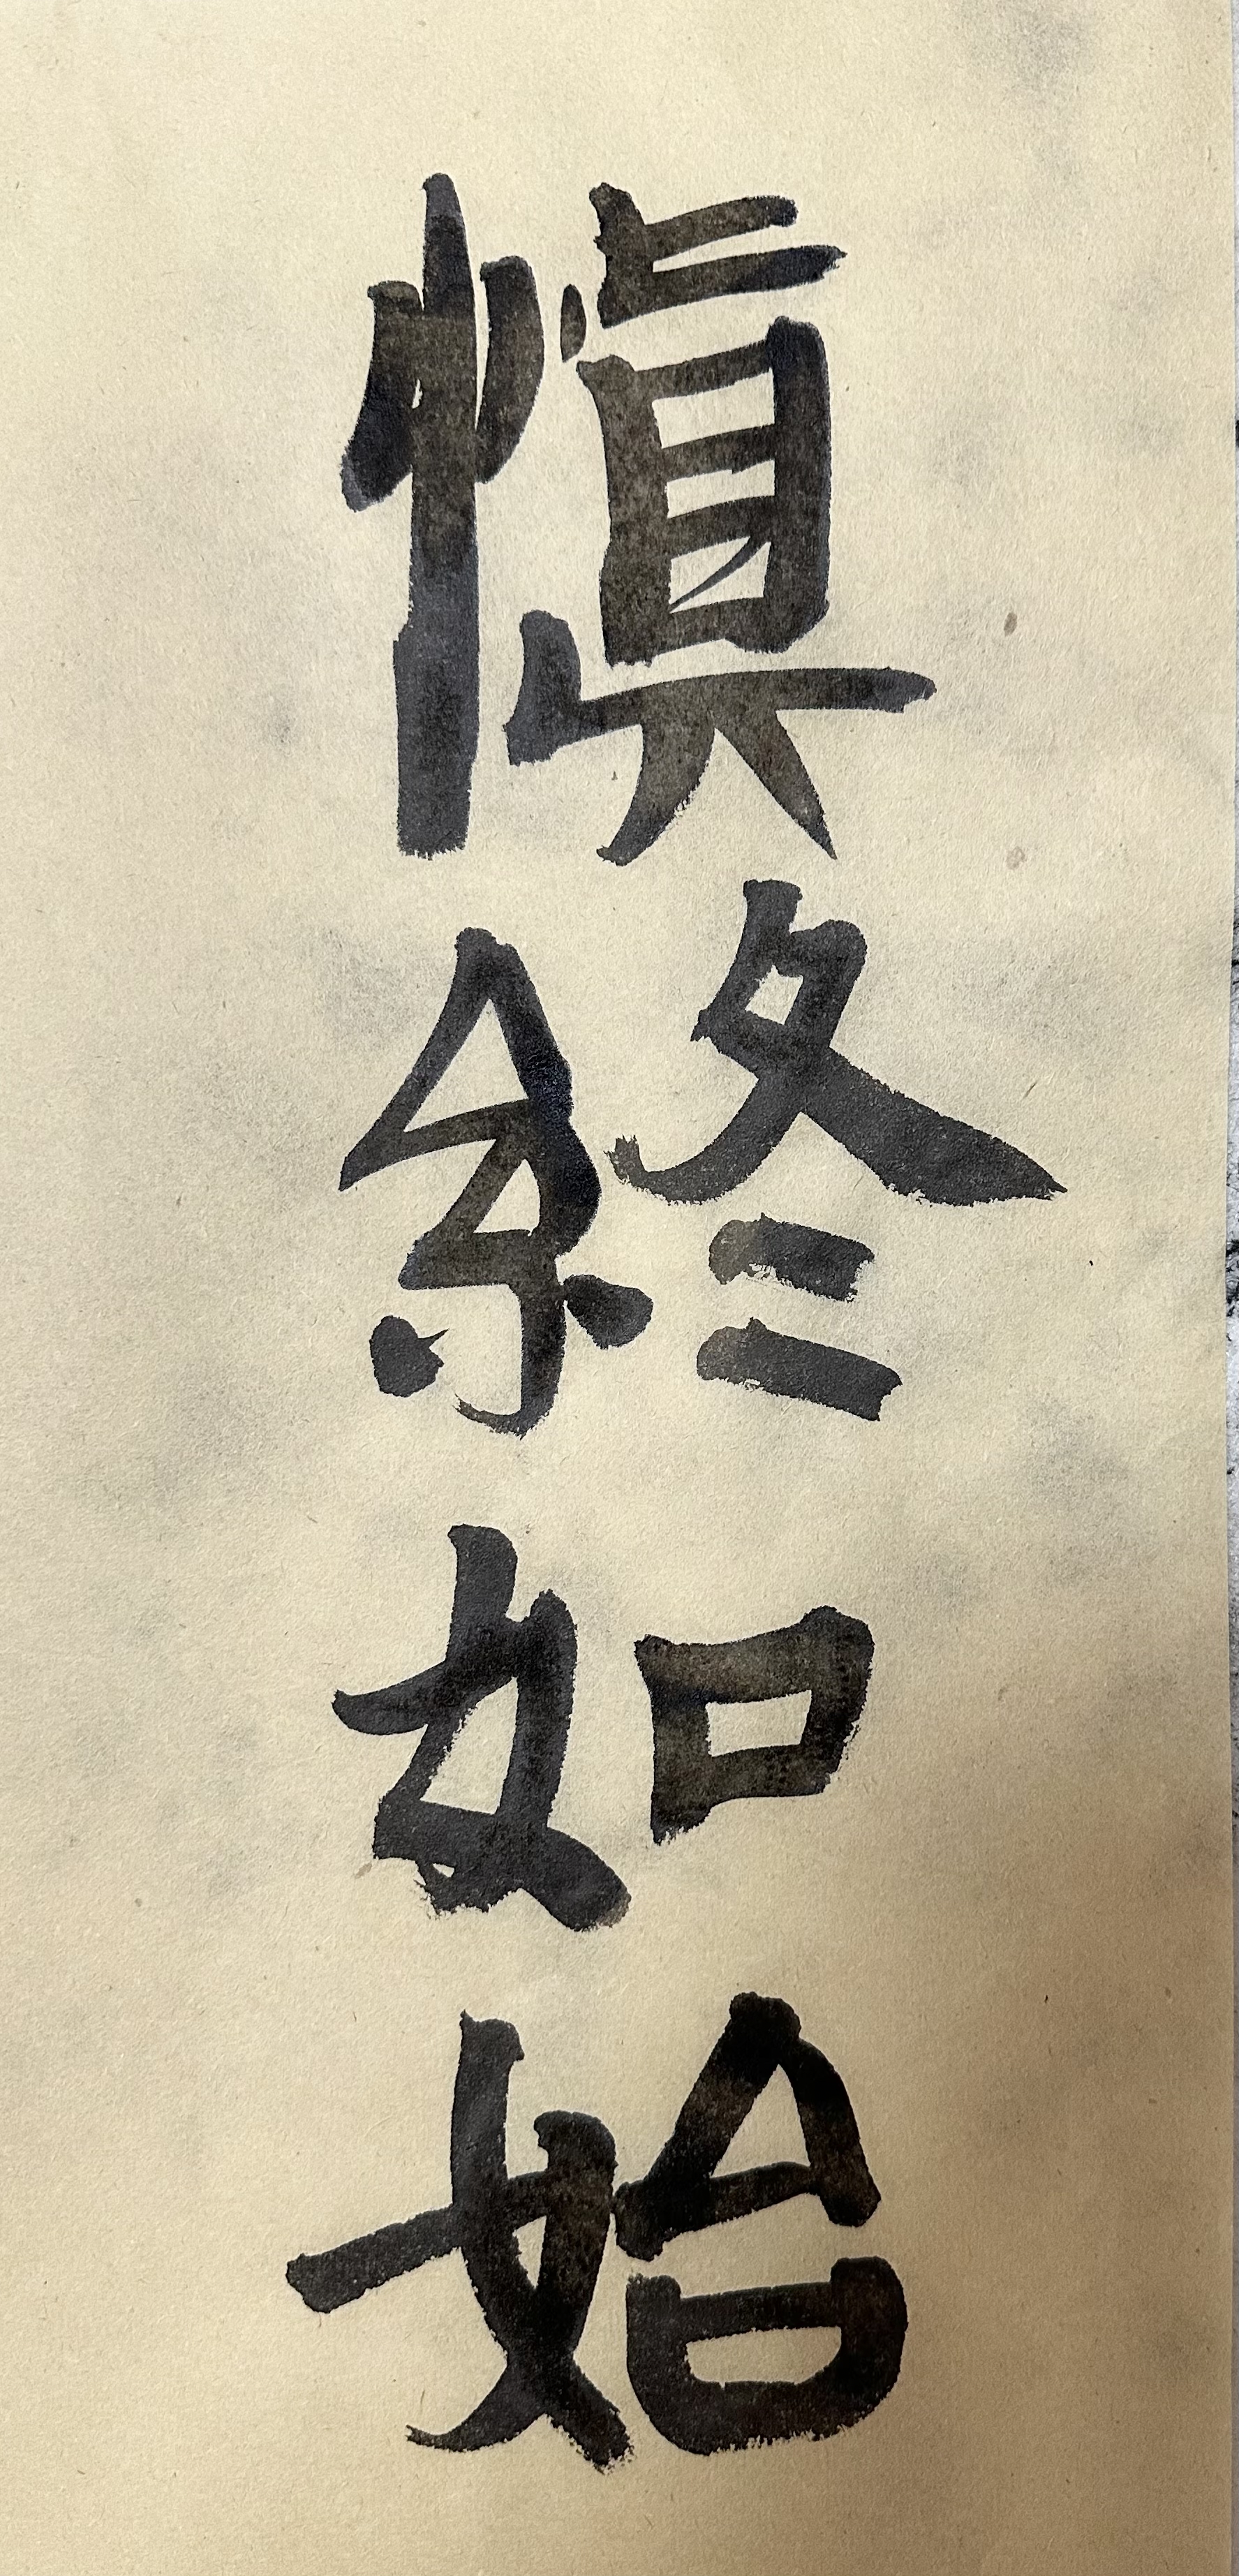 愼終如始